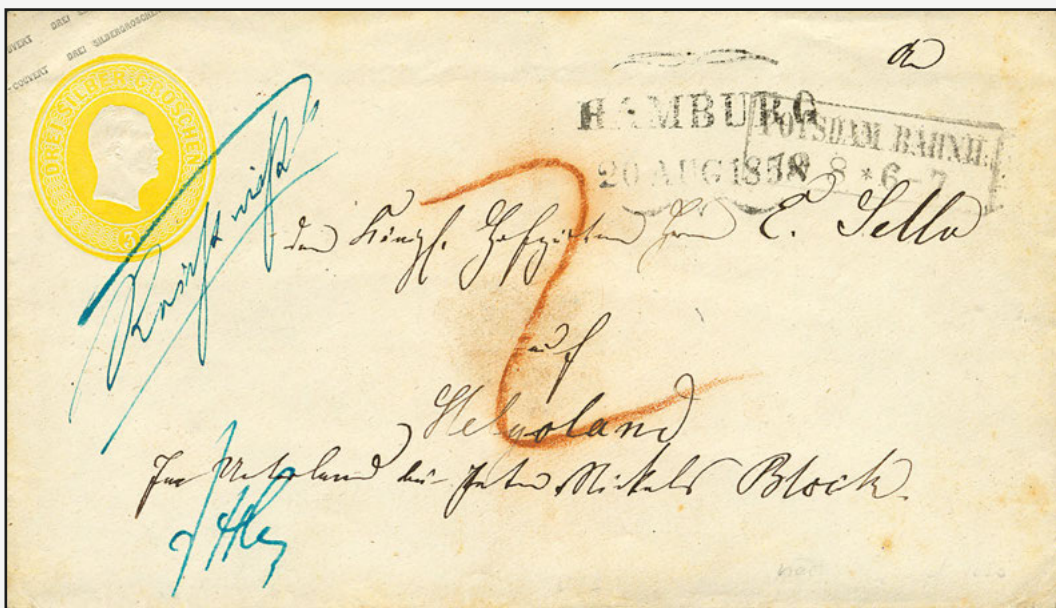 COUVERT DREI SILBERGROSCHEN
DREI SILBERGROSCHEN
3
HAMBURG
20 AUG 1858
POTSDAM BAHNH.
18 8 * 6-7
An
den Königl. Hofgärtner Herrn E. Sello
auf
Helgoland
Im Unterland bei Peter Nickels Block.
7